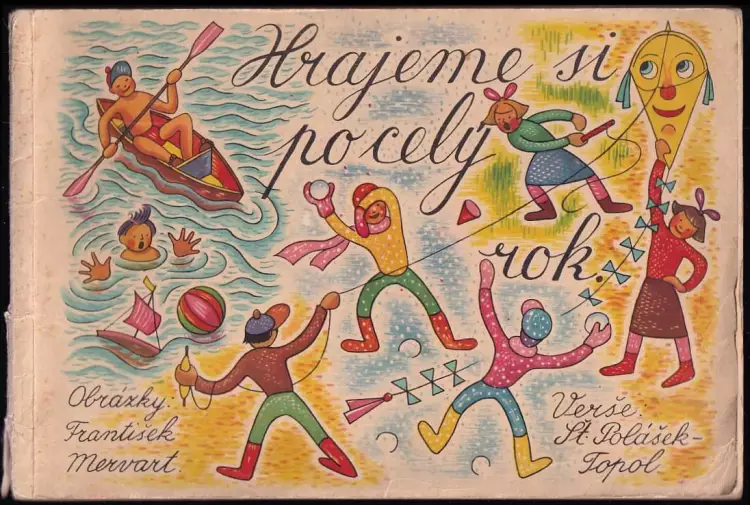 Hrajeme si
po celý
rok.
Obrázky:
František
Mervart.
Verše:
St. Polášek-
Topol